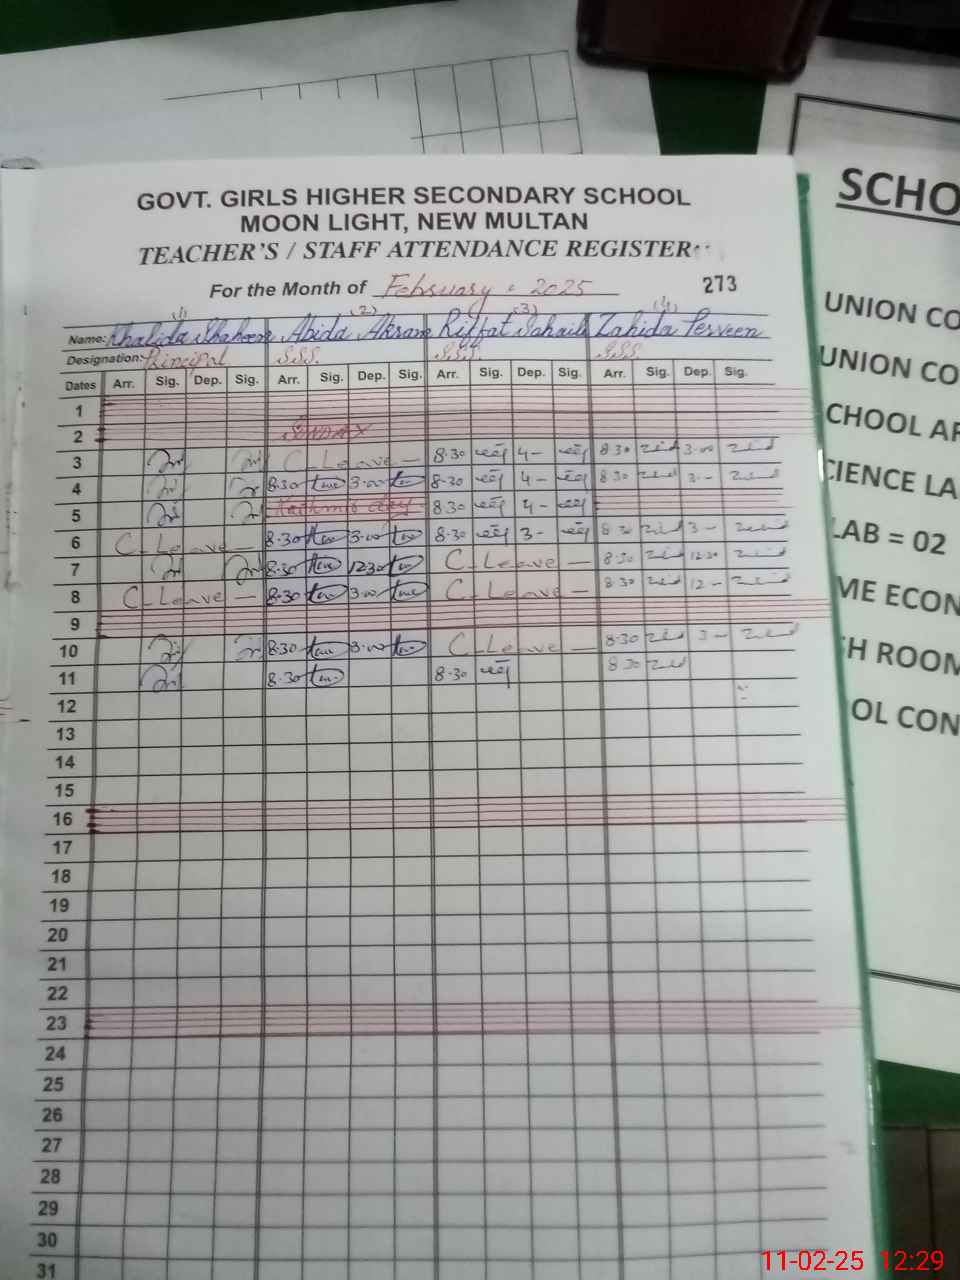 GOVT. GIRLS HIGHER SECONDARY SCHOOL
MOON LIGHT, NEW MULTAN
TEACHER'S / STAFF ATTENDANCE REGISTER
For the Month of February. 2025 273
(1) (2) (3) (4)
Name: Khalida Shaheen Abida Akram Riffat Sohail Zahida Perveen
Designation: Principal S.S.S. S.S.S. S.S.S.
Dates Arr. Sig. Dep. Sig. Arr. Sig. Dep. Sig. Arr. Sig. Dep. Sig. Arr. Sig. Dep. Sig.
1
2 SUNDAY
3 C-Leave- 8.30 4- 8.30 3.00
4 8.30 3.00 8.30 4- 8.30 3-
5 Kashmir day 8.30 4-
6 C-Leave- 8.30 3.00 8.30 3- 8.30 3-
7 8.30 12.30 C-Leave- 8.30 12.30
8 C-Leave- 8.30 3.00 C-Leave- 8.30 12-
9
10 8.30 3.00 C-Leave- 8.30 3-
11 8.30 8.30 8.30
12
13
14
15
16
17
18
19
20
21
22
23
24
25
26
27
28
29
30
31
SCHO
UNION CO
UNION CO
CHOOL AR
CIENCE LA
LAB = 02
ME ECON
H ROOM
OL CON
11-02-25 12:29